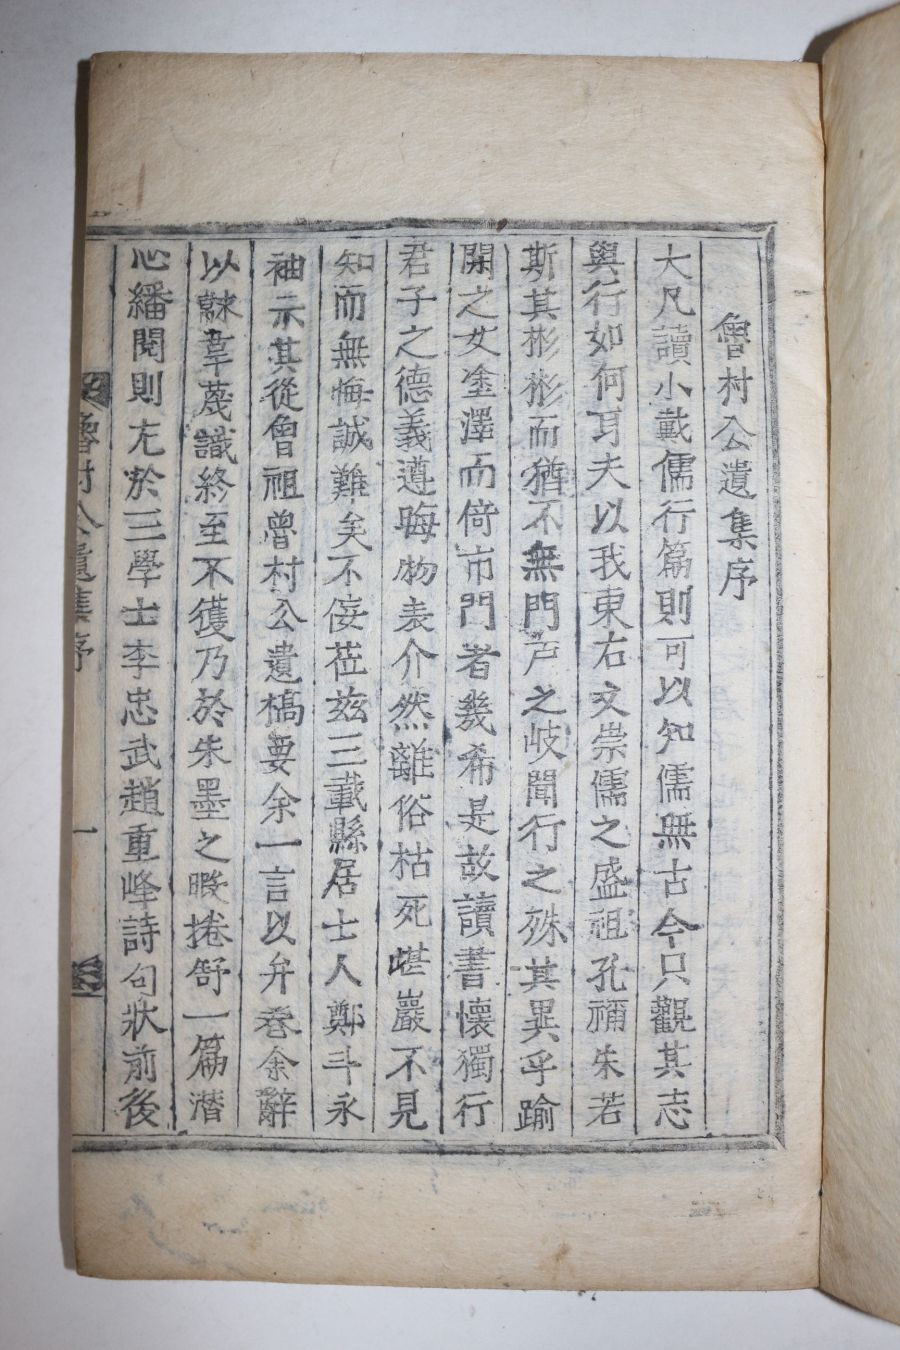 魯村公遺集序
大凡讀小戴儒行篇則可以知儒無古今只觀其志
與行如何耳夫以我東右文崇儒之盛祖孔禰朱若
斯其彬彬而猶不無門戶之岐聞行之殊其異乎踰
閑之女塗澤而倚市門者幾希是故讀書懷獨行
君子之德義遵晦物表介然離俗枯死嵁巖不見
知而無悔誠難矣不佞莅玆三載縣居士人鄭斗永
袖示其從曾祖魯村公遺稿要余一言以弁卷余辭
以韎韋蔑識終至不獲乃於朱墨之暇捲舒一篇潛
心繙閱則尤於三學士李忠武趙重峰詩句狀前後
魯村公遺集序
一